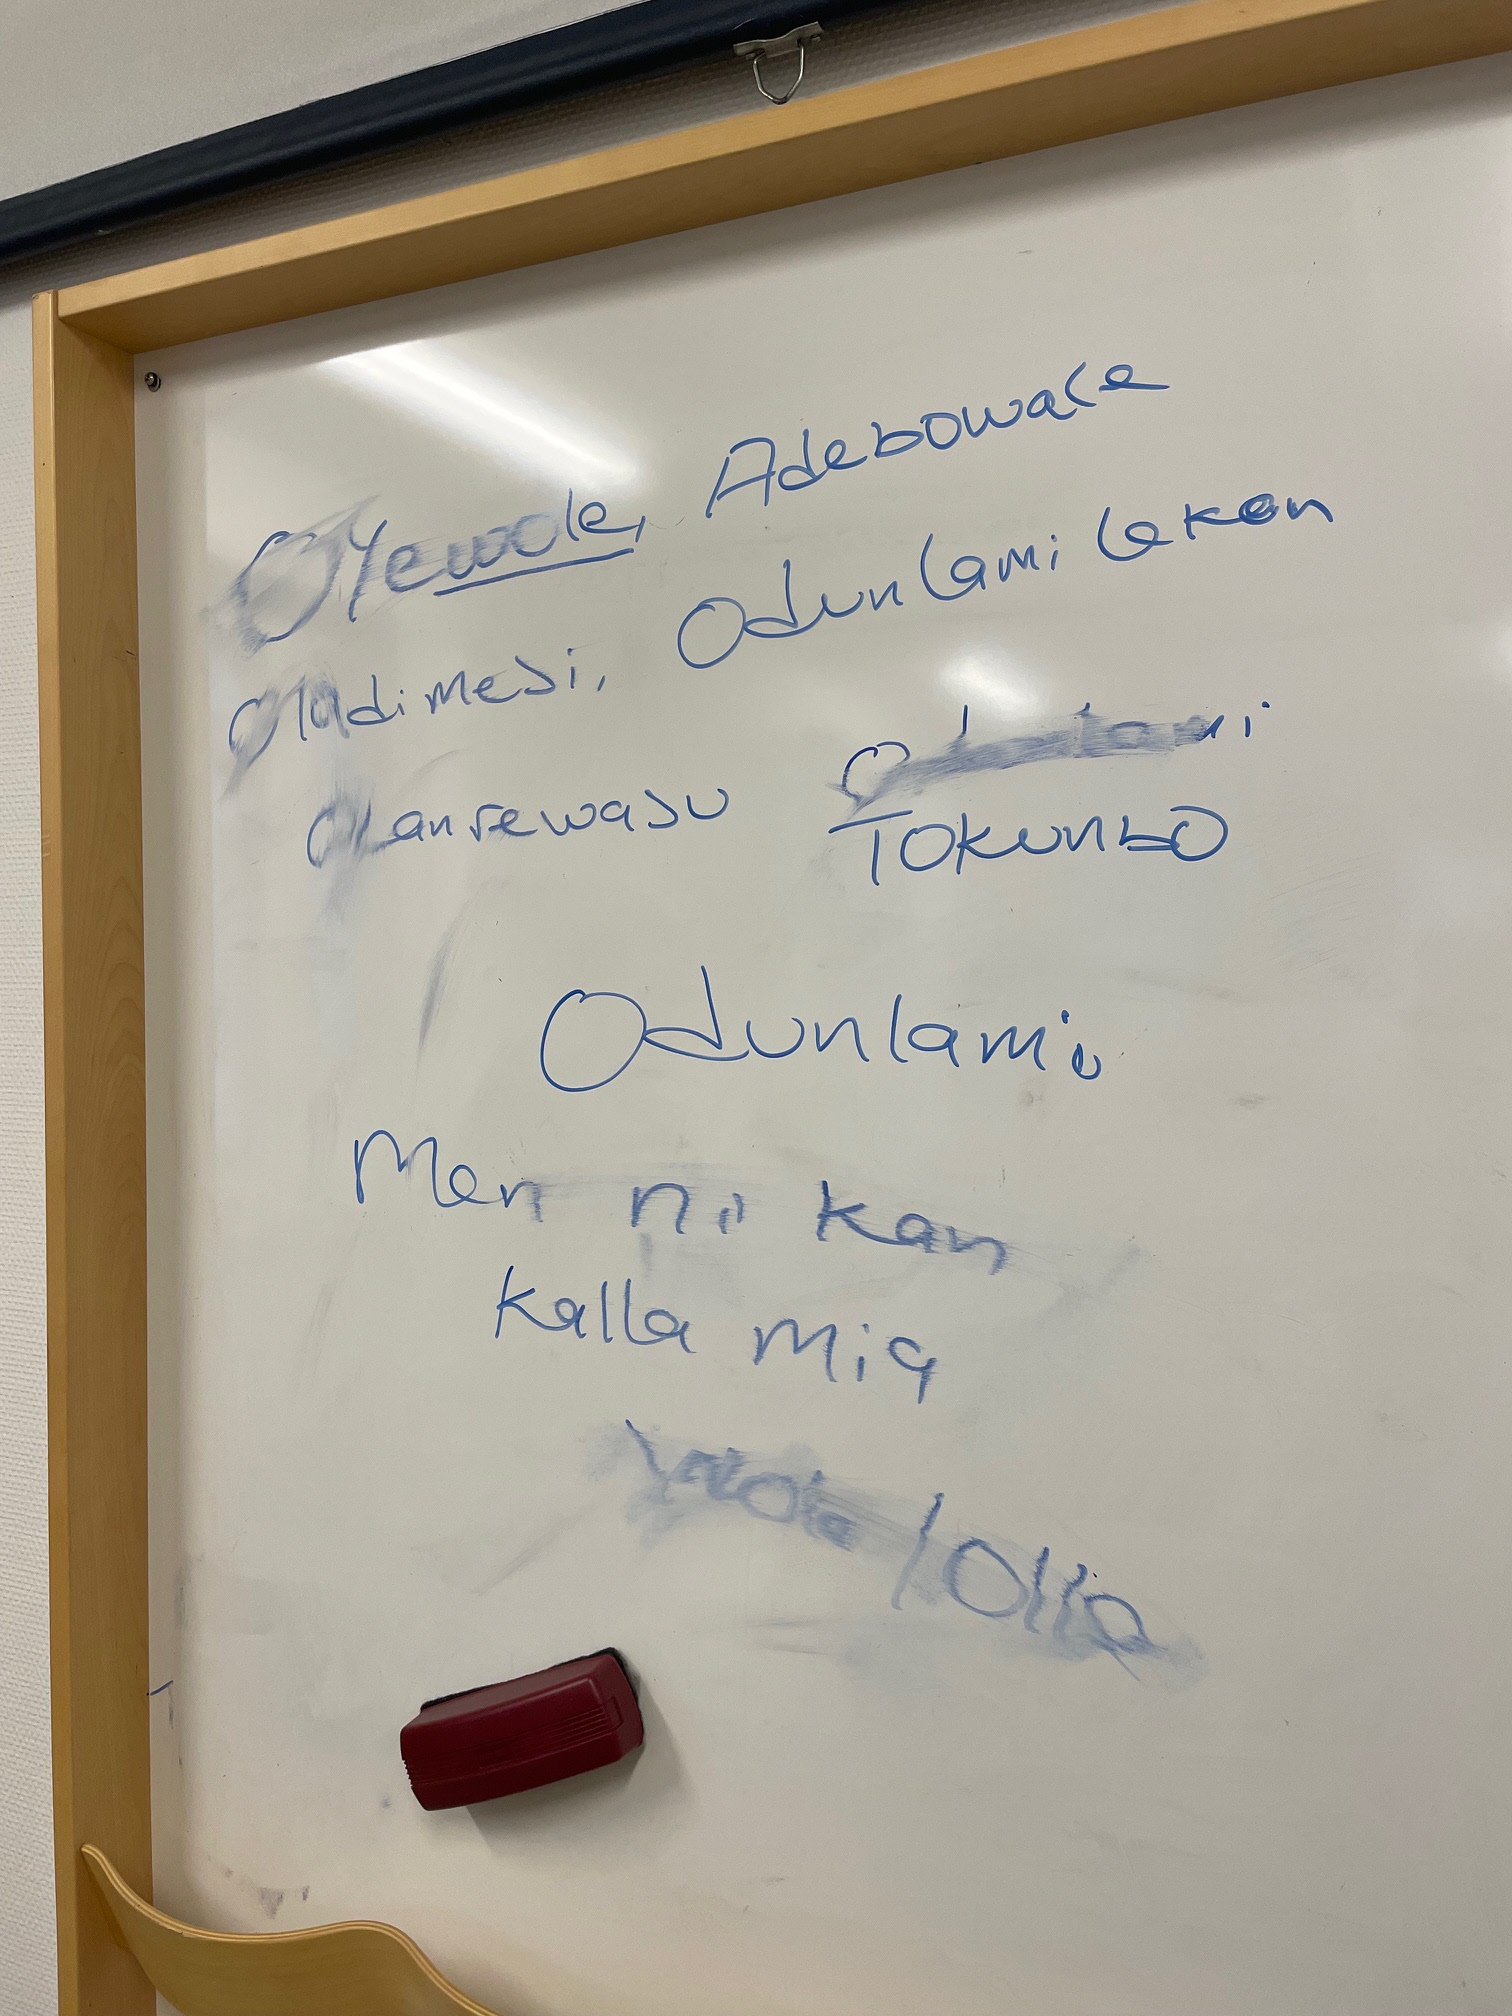 Oyewole, Adebowale
Oladimeji, Odunlami lekan
Olanrewaju Odunlami
TOKUNbO
Odunlami
Men ni kan
kalla mig
Wole / Olla